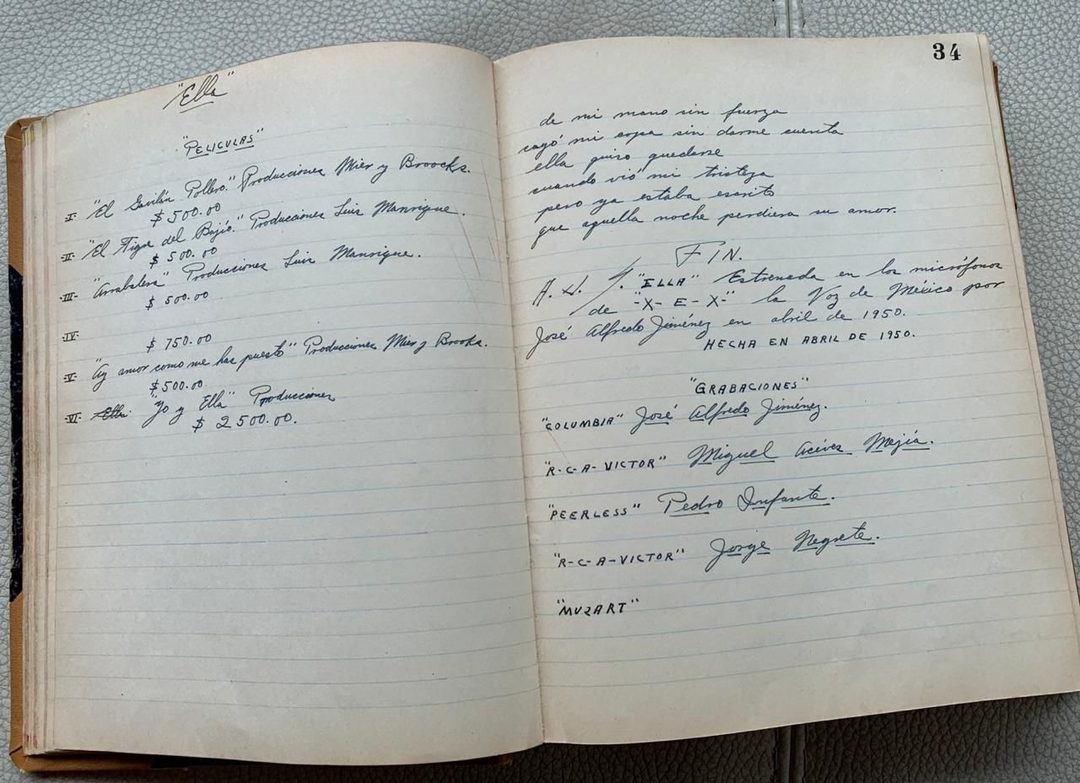 "Ella"
"PELICULAS"
I- "El Gavilán Pollero." Producciones Mier y Broocks.
$ 500.00
II- "El Tigre del Bajío." Producciones Luis Manrique.
$ 500.00
III- "Arrabalera" Producciones Luis Manrique.
$ 500.00
IV-
$ 750.00
V- "Ay amor como me has puesto" Producciones Mier y Brooks.
$ 500.00
VI- Ella: "Yo y Ella" Producciones
$ 2500.00.
34
de mi mano sin fuerza
cayó mi copa sin darme cuenta
ella quiso quedarse
cuando vió mi tristeza
pero ya estaba escrito
que aquella noche perdiera su amor.
FIN.
"ELLA" Estrenada en los micrófonos
de "-X- E -X-" la Voz de México por
José Alfredo Jiménez en abril de 1950.
HECHA EN ABRIL DE 1950.
"GRABACIONES"
"COLUMBIA" José Alfredo Jiménez.
"R-C-A-VICTOR" Miguel Aceves Mejía.
"PEERLESS" Pedro Infante.
"R-C-A-VICTOR" Jorge Negrete.
"MUZART"